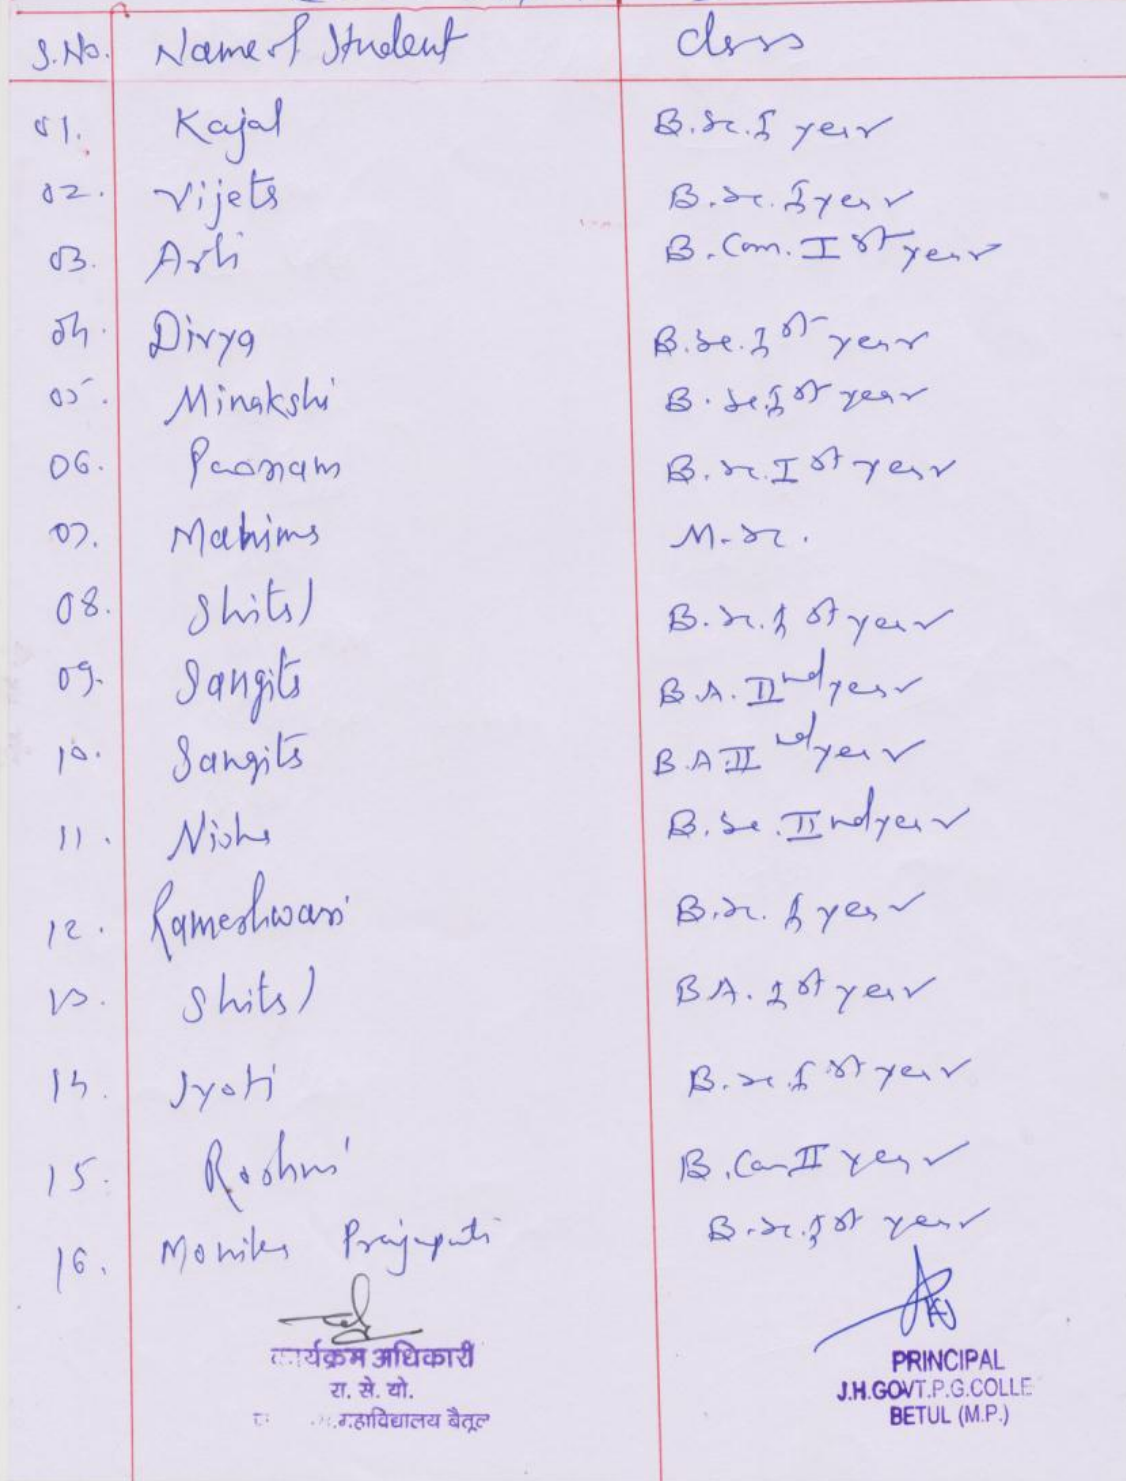 S.No. Name of Student Class
01. Kajal B.Sc. I year
02. Vijeta B.Sc. I year
03. Arti B.Com. I st year
04. Divya B.Sc. I st year
05. Minakshi B.Sc. I st year
06. Poonam B.Sc. I st year
07. Mahima M.Sc.
08. Shital B.Sc. I st year
09. Sangita B.A. II nd year
10. Sangita B.A II nd year
11. Nisha B.Sc. II nd year
12. Rameshwari B.Sc. I year
13. Shital BA. I st year
14. Jyoti B.Sc. I st year
15. Roshni B.Com II year
16. Monika Prajapati B.Sc. I st year
कार्यक्रम अधिकारी
रा. से. यो.
महाविद्यालय बैतूल
PRINCIPAL
J.H.GOVT.P.G.COLLE
BETUL (M.P.)